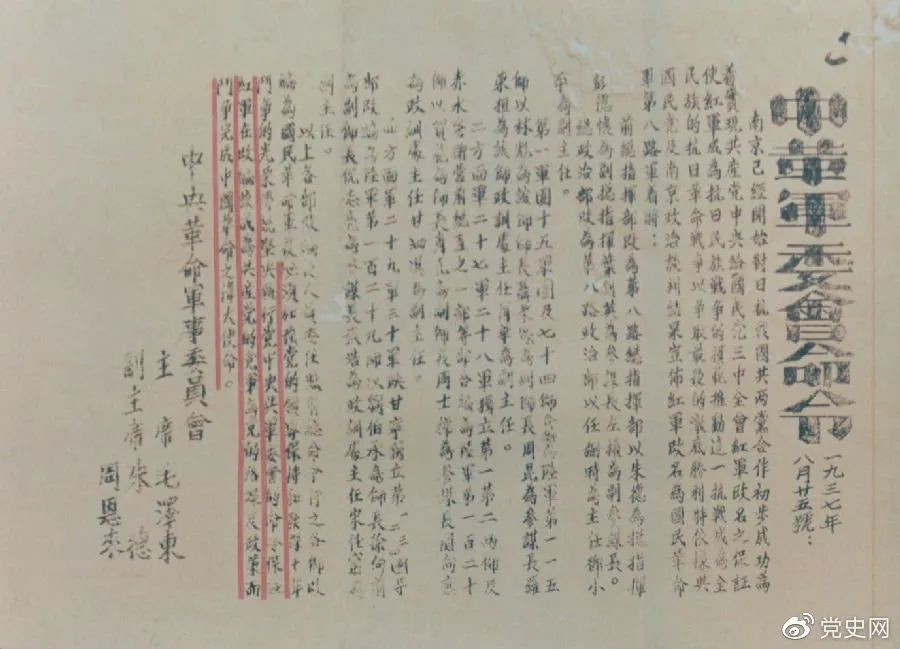 中革軍委會命令
一九三七年
八月廿五號：
南京已經開始對日抗戰國共兩黨合作初步成功為
着實現共産党中央給國民党三中全會紅軍改名之保証
使紅軍成為抗日民族戰爭的模範推動這一抗戰成為全
民族的抗日革命戰爭以爭取最後的澈底勝利特依據共
國民党及南京政治談判結果宣佈紅軍改名為國民革命
軍第八路軍着將：
前總指揮部改為第八路總指揮部以朱德為總指揮
彭德懷為副總指揮葉劍英為參謀長左權為副參謀長。
總政治部改為第八路政治部以任弼時為主任鄧小
平為副主任。
第一軍團十五軍團及七十四師合編為陸軍第一一五
師以林彪為該師師長聶榮臻為副師長周昆為參謀長羅
榮桓為該師政訓處主任蕭華為副主任。
二方面軍二十七軍二十八軍獨立第一第二兩師及
赤水警衛營前總直之一部等部合編為陸軍第一百二十
師以賀龍為師長蕭克為副師長周士第為參謀長關向應
為政訓處主任甘泗淇為副主任。
四方面軍二十九軍三十軍陝甘寧獨立第一二三四等
師改編為陸軍第一百二十九師以劉伯承為師長徐向前
為副師長倪志亮為參謀長張浩為政訓處主任宋任窮為
副主任。
以上各部改編後人員委任照前總命令行之各部改
編為國民革命軍後必須加強党的領導保持和發揮十年
鬥爭的光榮傳統堅決執行党中央與軍委會的命令保証
紅軍在改編後成為共産党的党軍為党的路線及政策而
鬥爭完成中國革命之偉大使命。
中央革命軍事委員會
主席毛澤東
副主席朱德
周恩來
党史网